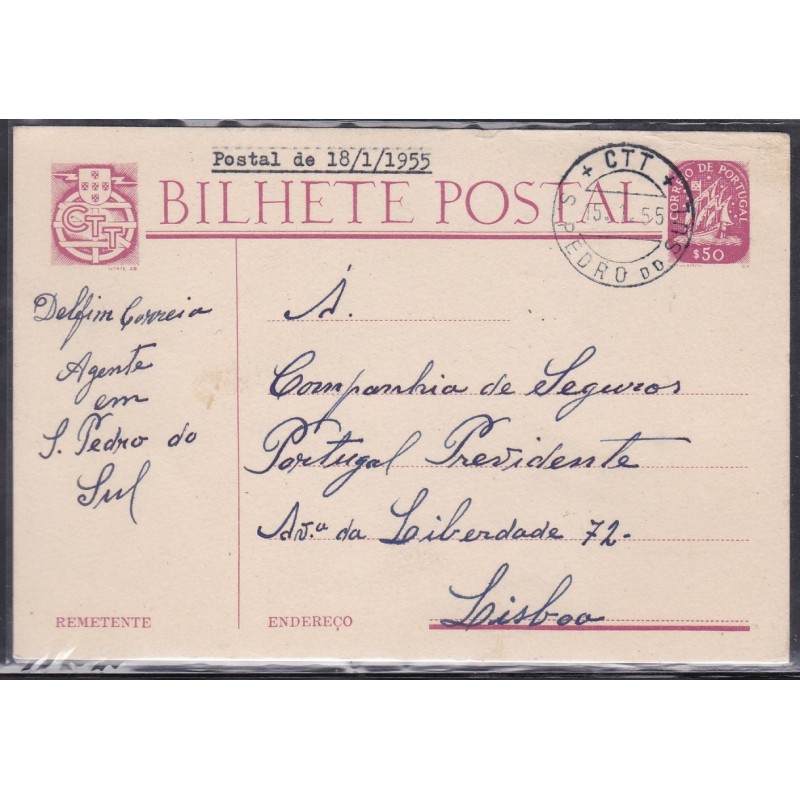 Postal de 18/1/1955
CTT
BILHETE POSTAL
+ CTT +
15.1.55
S. PEDRO DO SUL
CORREIO DE PORTUGAL
$50
Delfim Correia
Agente
em
S. Pedro do
Sul
REMETENTE
Á.
Companhia de Seguros
Portugal Previdente
Av.ª da Liberdade 72-
Lisboa
ENDEREÇO